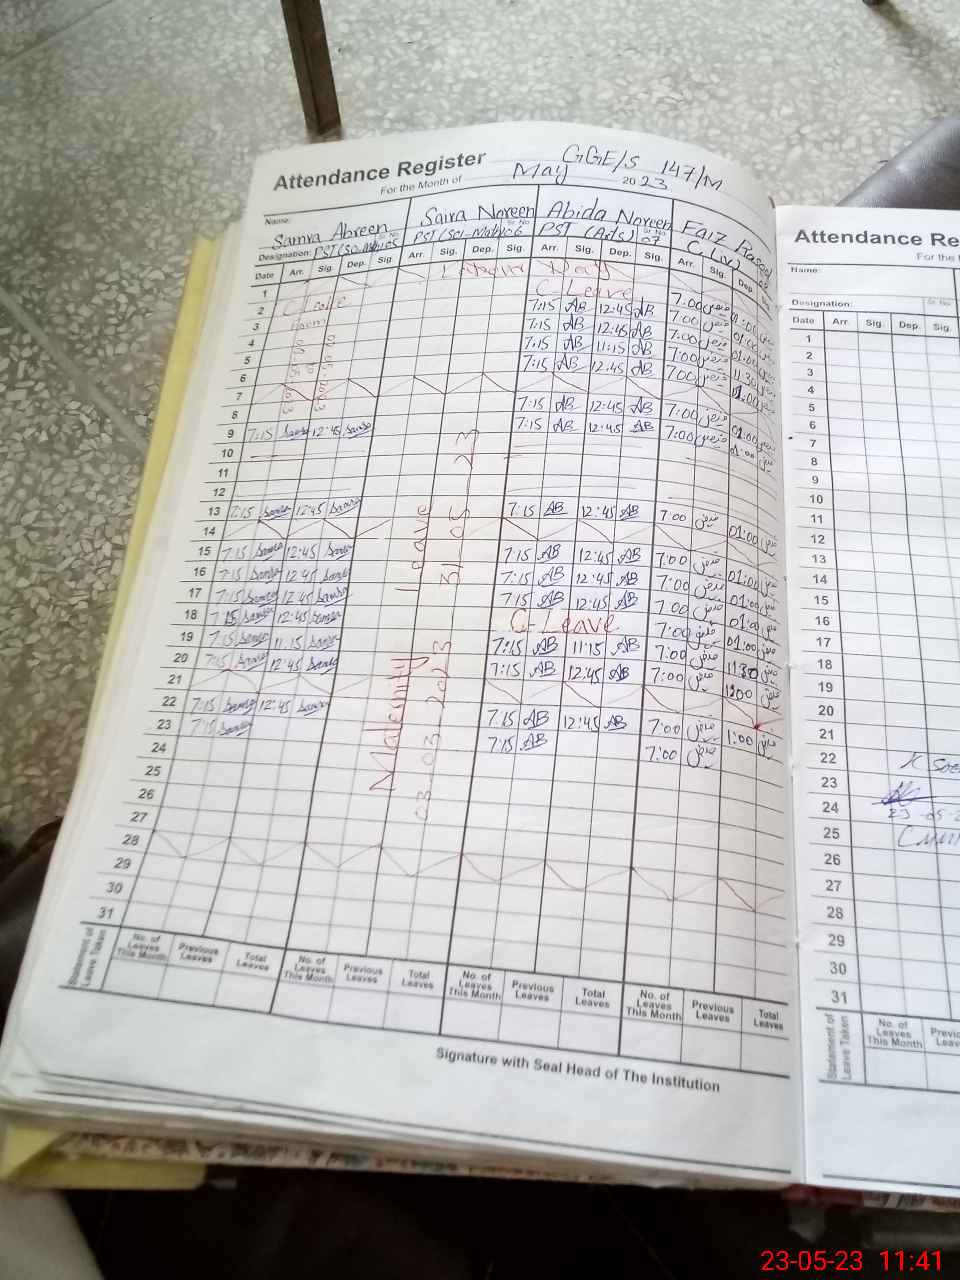 Attendance Register GGE/S 147/M
For the Month of May 2023
Name: Samra Abreen Saira Noreen Abida Noreen Faiz Rasool
Designation: PST (Arts) Sr. No 07 C.(iv)
Date Arr. Sig. Dep. Sig. Arr. Sig. Dep. Sig. Arr. Sig. Dep. Sig. Arr. Sig. Dep. Sig.
1 Labour Day
2 C-Leave 7:00
3 7:15 AB 12:45 AB 7:00
4 7:15 AB 12:45 AB 7:00
5 7:15 AB 11:15 AB 7:00 11:30
6 7:15 AB 12:45 AB 7:00 01:00
7
8 7:15 AB 12:45 AB 7:00 01:00
9 7:15 Samra 12:45 Samra 7:15 AB 12:45 AB 7:00 01:00
10
11
12
13 7:15 Samra 12:45 Samra 7:15 AB 12:45 AB 7:00 01:00
14
15 7:15 Samra 12:45 Samra 7:15 AB 12:45 AB 7:00 01:00
16 7:15 Samra 12:45 Samra 7:15 AB 12:45 AB 7:00 01:00
17 7:15 Samra 12:45 Samra 7:15 AB 12:45 AB 7:00 01:00
18 7:15 Samra 12:45 Samra C-Leave 7:00 01:00
19 7:15 Samra 11:15 Samra 7:15 AB 11:15 AB 7:00 11:30
20 7:15 Samra 12:45 Samra 7:15 AB 12:45 AB 7:00 1:00
21
22 7:15 Samra 12:45 Samra 7:15 AB 12:45 AB 7:00 1:00
23 7:15 Samra 7:15 AB 7:00
24
25
26
27
28
29
30
31
Maternity Leave
03-03-2023 31-05-23
Statement of Leave Taken
No. of Leaves This Month Previous Leaves Total Leaves No. of Leaves This Month Previous Leaves Total Leaves No. of Leaves This Month Previous Leaves Total Leaves No. of Leaves This Month Previous Leaves Total Leaves
Signature with Seal Head of The Institution
Attendance Re
For the
Name:
Designation: Sr. No
Date Arr. Sig. Dep. Sig.
1
2
3
4
5
6
7
8
9
10
11
12
13
14
15
16
17
18
19
20
21
22
23
24
25
26
27
28
29
30
31
Statement of Leave Taken
No. of Leaves This Month
23-05-23 11:41